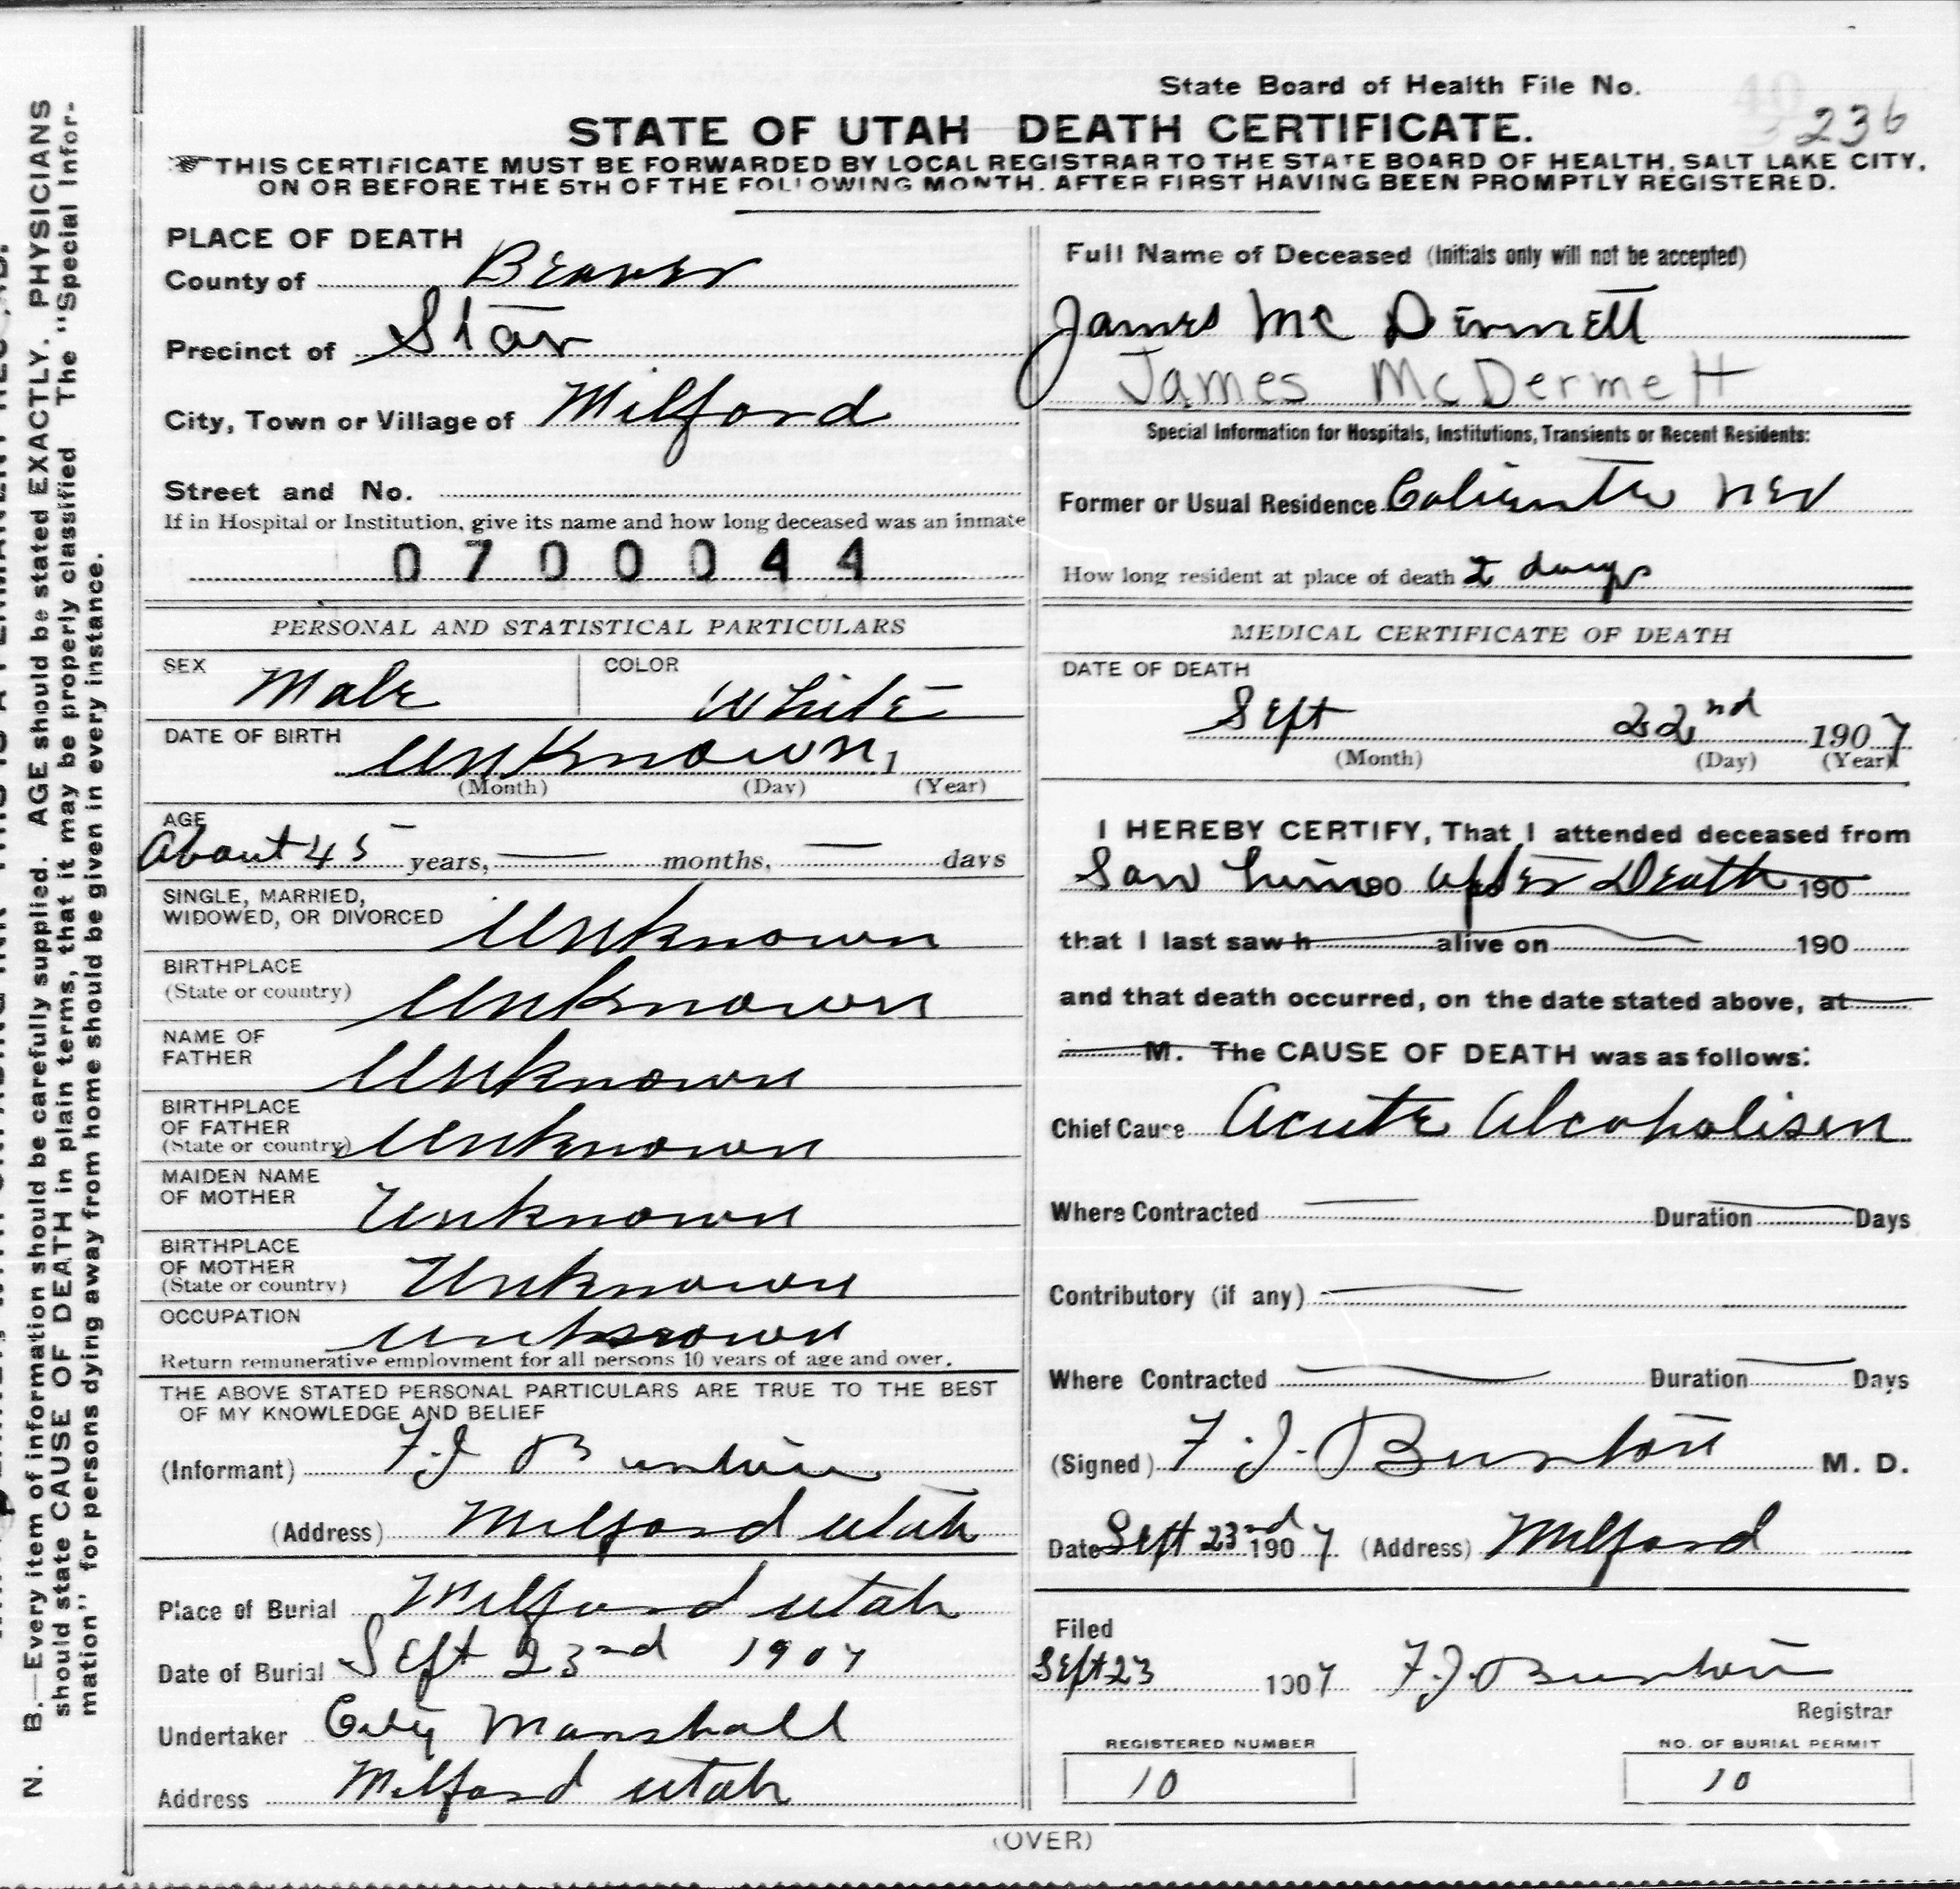 State Board of Health File No.
236
STATE OF UTAH DEATH CERTIFICATE.
THIS CERTIFICATE MUST BE FORWARDED BY LOCAL REGISTRAR TO THE STATE BOARD OF HEALTH, SALT LAKE CITY,
ON OR BEFORE THE 5TH OF THE FOLLOWING MONTH. AFTER FIRST HAVING BEEN PROMPTLY REGISTERED.
PLACE OF DEATH
County of Beaver
Precinct of Star
City, Town or Village of Milford
Street and No.
If in Hospital or Institution, give its name and how long deceased was an inmate
0700044
Full Name of Deceased (Initials only will not be accepted)
James Mc Dermett
James McDermett
Special Information for Hospitals, Institutions, Transients or Recent Residents:
Former or Usual Residence Caliente Nev
How long resident at place of death 2 days
PERSONAL AND STATISTICAL PARTICULARS
SEX Male COLOR White
DATE OF BIRTH Unknown, 1
(Month) (Day) (Year)
AGE
About 45 years, months, days
SINGLE, MARRIED,
WIDOWED, OR DIVORCED Unknown
BIRTHPLACE
(State or country) Unknown
NAME OF
FATHER Unknown
BIRTHPLACE
OF FATHER
(State or country) Unknown
MAIDEN NAME
OF MOTHER Unknown
BIRTHPLACE
OF MOTHER
(State or country) Unknown
OCCUPATION Unknown
Return remunerative employment for all persons 10 years of age and over.
THE ABOVE STATED PERSONAL PARTICULARS ARE TRUE TO THE BEST
OF MY KNOWLEDGE AND BELIEF
(Informant) F.J Burton
(Address) Milford Utah
Place of Burial Milford Utah
Date of Burial Sept 23nd 1907
Undertaker City Marshall
Address Milford Utah
MEDICAL CERTIFICATE OF DEATH
DATE OF DEATH
Sept 22nd 1907
(Month) (Day) (Year)
I HEREBY CERTIFY, That I attended deceased from
Saw him 190 after Death 190
that I last saw h alive on 190
and that death occurred, on the date stated above, at
M. The CAUSE OF DEATH was as follows:
Chief Cause Acute Alcoholism
Where Contracted Duration Days
Contributory (if any)
Where Contracted Duration Days
(Signed) F.J. Burton M. D.
Date Sept 23nd 1907 (Address) Milford
Filed
Sept 23 1907 F.J. Burton
Registrar
REGISTERED NUMBER
10
NO. OF BURIAL PERMIT
10
(OVER)
N. B.—Every item of information should be carefully supplied. AGE should be stated EXACTLY. PHYSICIANS
should state CAUSE OF DEATH in plain terms, that it may be properly classified The "Special Infor-
mation" for persons dying away from home should be given in every instance.